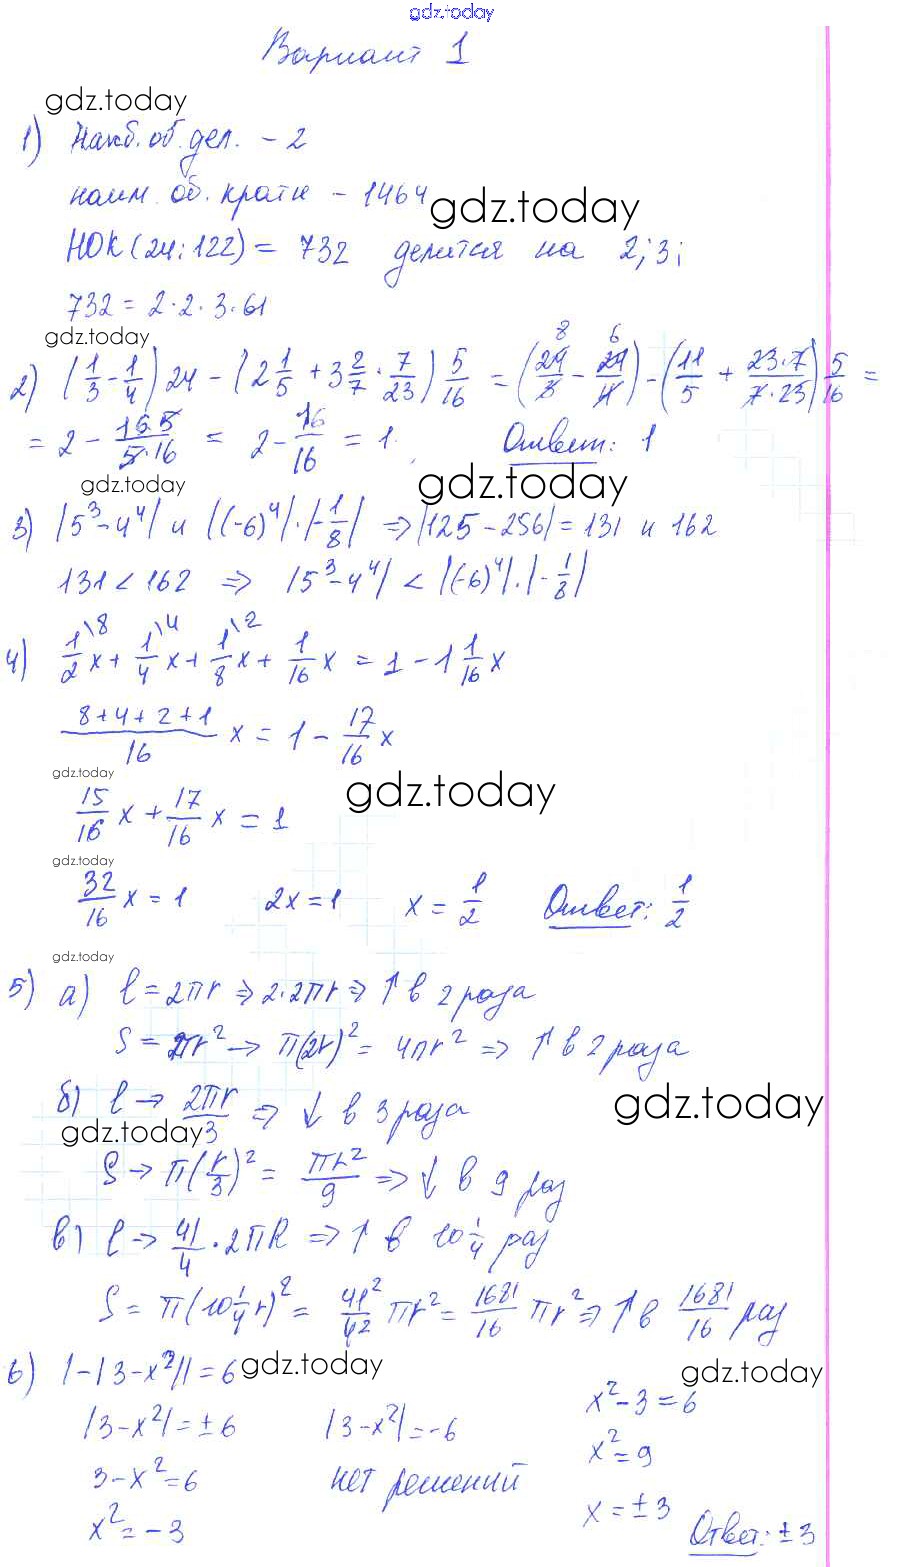 gdz.today
Вариант 1
gdz.today
1) Наиб. об. дел. - 2
наим. об. кратн - 1464
gdz.today
НОК (24; 122) = 732 делится на 2; 3;
732 = 2·2·3·61
gdz.today
2) (1/3 - 1/4) 24 - (2 1/5 + 3 2/7 · 7/23) 5/16 = (24/3 - 24/4) - (11/5 + 23·7/7·23) 5/16 =
8 6
= 2 - 16·5/5·16 = 2 - 16/16 = 1. Ответ: 1
gdz.today gdz.today
3) |5³ - 4⁴| и |(-6)⁴|·|-1/8| => |125 - 256| = 131 и 162
131 < 162 => |5³ - 4⁴| < |(-6)⁴|·|-1/8|
4) 1/2\8 x + 1/4\4 x + 1/8\2 x + 1/16 x = 1 - 1 1/16 x
8+4+2+1/16 x = 1 - 17/16 x
gdz.today gdz.today
15/16 x + 17/16 x = 1
gdz.today
32/16 x = 1 2x = 1 x = 1/2 Ответ: 1/2
gdz.today
5) а) l = 2πr => 2·2πr => ↑ в 2 раза
S = πr² → π(2r)² = 4πr² => ↑ в 2 раза
б) l → 2πr/3 => ↓ в 3 раза
gdz.today gdz.today
S → π(r/3)² = πr²/9 => ↓ в 9 раз
в) l → 41/4 · 2πR => ↑ в 10 1/4 раз
S = π(10 1/4 r)² = 41²/42 πr² = 1681/16 πr² => ↑ в 1681/16 раз
6) |-|3-x²|| = 6 gdz.today gdz.today
|3-x²| = ±6 |3-x²| = -6 x²-3 = 6
3-x² = 6 нет решений x² = 9
x² = -3 x = ±3
Ответ: ±3